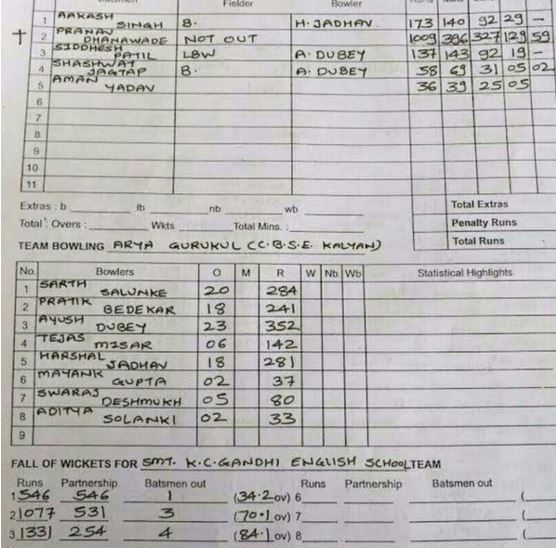 Batsmen Fielder Bowler Runs Mins
1 AAKASH SINGH B. H. JADHAV. 173 140 92 29 –
† 2 PRANAV DHANAWADE NOT OUT 1009 396 327 129 59
3 SIDDHESH PATIL LBW A. DUBEY 137 143 92 19 –
4 SHASHWAT JAGTAP B. A. DUBEY 58 69 31 05 02
5 AMAN YADAV 36 39 25 05
6
7
8
9
10
11
Extras : b ib nb wb Total Extras
Total : Overs : Wkts Total Mins. : Penalty Runs
Total Runs
TEAM BOWLING ARYA GURUKUL (C.B.S.E. KALYAN)
No. Bowlers O M R W Nb Wb Statistical Highlights
1 SARTH SALUNKE 20 284
2 PRATIK BEDEKAR 18 241
3 AYUSH DUBEY 23 352
4 TEJAS MISAR 06 142
5 HARSHAL JADHAV 18 281
6 MAYANK GUPTA 02 37
7 SWARAJ DESHMUKH 05 80
8 ADITYA SOLANKI 02 33
9
FALL OF WICKETS FOR SMT. K.C.GANDHI ENGLISH SCHOOL TEAM
Runs Partnership Batsmen out Runs Partnership Batsmen out
1 546 546 1 (34.2 ov) 6 (
2 1077 531 3 (70.1 ov) 7 (
3 1331 254 4 (84.1 ov) 8 (